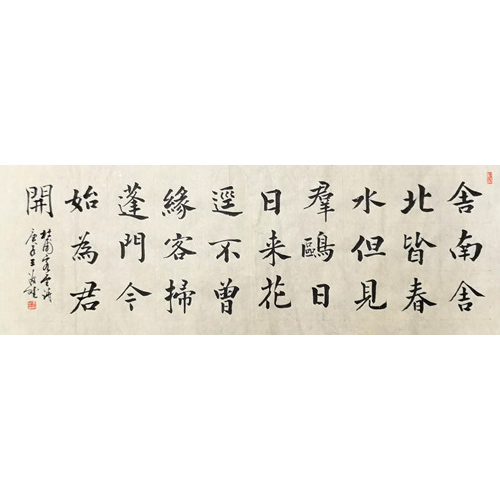 舍南舍
北皆春
水但見
羣鷗日
日来花
逕不曾
緣客掃
蓬門今
始為君
開
杜甫客至詩
庚子王